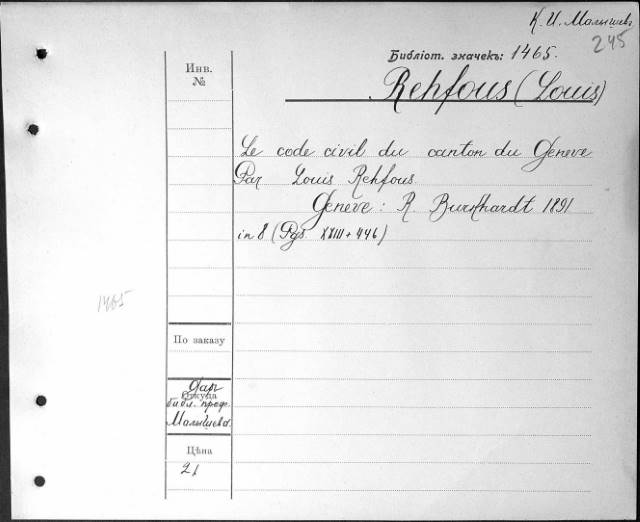 К. И. Малышевъ
245
Библіот. значекъ: 1465.
Rehfous (Louis)
Инв.
№
Le code civil du canton du Geneve
Par Louis Rehfous
Geneve : R. Burkhardt 1891
in 8 (Pgs. XXIII + 446)
1465
По заказу
Откуда
Даръ
библ. проф.
Малышева.
Цѣна
21